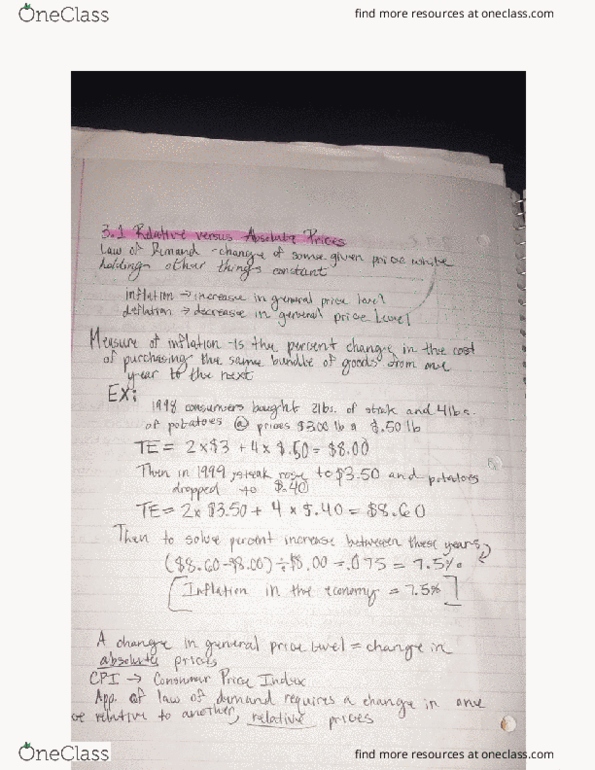 OneClass
find more resources at oneclass.com
3.1 Relative versus Absolute Prices
Law of Demand - change of some given price while
holding other things constant
inflation → increase in general price level
deflation → decrease in general price Level
Measure of inflation - is the percent change in the cost
of purchasing the same bundle of goods from one
year to the next
Ex:
1998 consumers bought 2lbs. of steak and 4lbs.
of potatoes @ prices $3.00 lb & $.50 lb
TE = 2x$3 + 4 x $.50 = $8.00
Then in 1999, steak rose to $3.50 and potatoes
dropped to $.40
TE = 2x $3.50 + 4 x $.40 = $8.60
Then to solve percent increase between these years,
($8.60-$8.00) ÷ $8.00 = .075 = 7.5%
[Inflation in the economy = 7.5%]
A change in general price level = change in
absolute prices
CPI → Consumer Price Index
App. of law of demand requires a change in one
relative to another, relative prices
OneClass
find more resources at oneclass.com